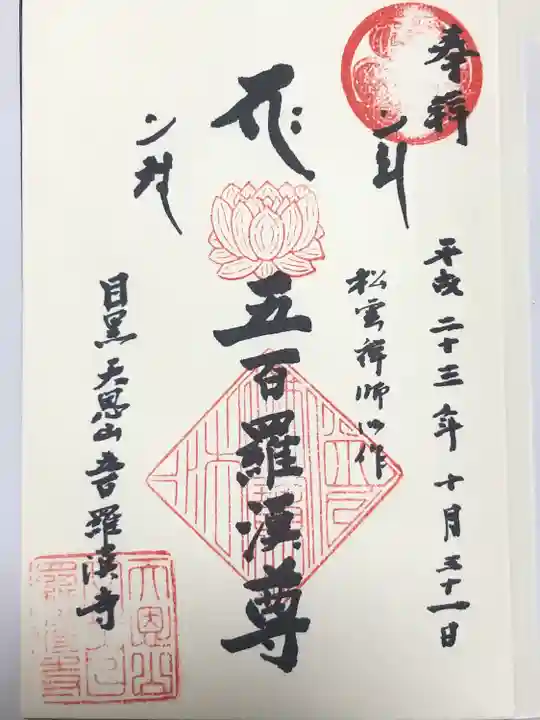 奉拝
平成二十三年十月三十一日
松雲禅師作
五百羅漢尊
目黒天恩山五百羅漢寺